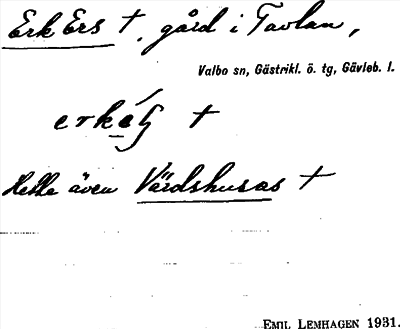 Erk Ers †, gård i Tavlan,
Valbo sn, Gästrikl. ö. tg, Gävleb. l.
†
Hette även Värdshusas †
EMIL LEMHAGEN 1931.